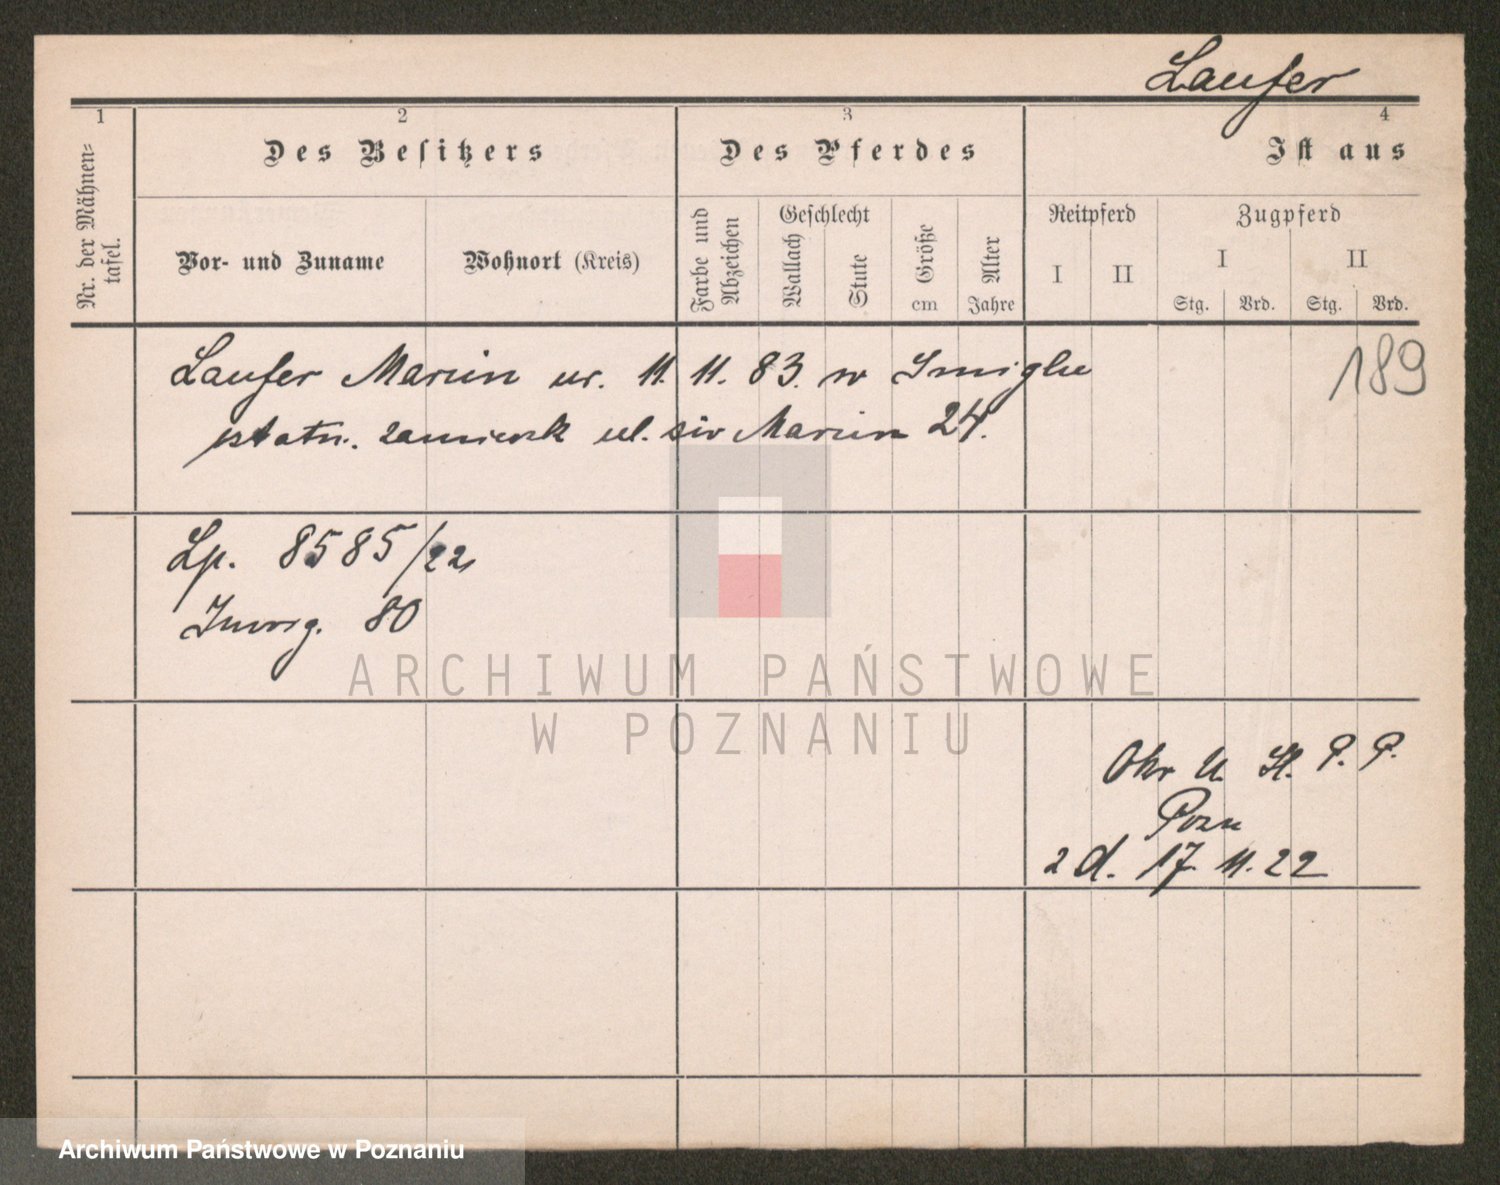 Laufer
1 2 3 4
Nr. der Mähnen-
tafel.
Des Besitzers
Des Pferdes
Ist aus
Vor- und Zuname
Wohnort (Kreis)
Farbe und
Abzeichen
Geschlecht
Wallach
Stute
Größe
cm
Alter
Jahre
Reitpferd
I II
Zugpferd
I II
Stg. Vrd. Stg. Vrd.
189
Laufer Marcin ur. 11. 11. 83. w Śmiglu
ostatn. zamieszk ul. św Marcin 24.
Lp. 8585/22
Inwig. 80
ARCHIWUM PAŃSTWOWE
W POZNANIU
Okr U. St. P. P.
Pozn
z d. 17 11. 22
Archiwum Państwowe w Poznaniu